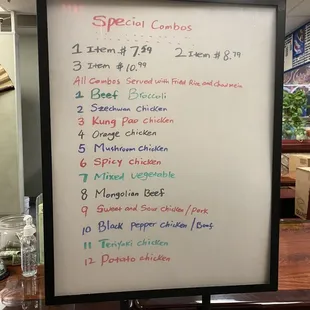 Special Combos
1 Item $ 7.59 2 Item $ 8.79
3 Item $ 10.99
All Combos Served with Fried Rice and chowmein
1 Beef Broccoli
2 Szechwan chicken
3 Kung Pao chicken
4 Orange chicken
5 Mushroom chicken
6 Spicy chicken
7 Mixed vegetable
8 Mongolian Beef
9 Sweet and Sour chicken / Pork
10 Black pepper chicken / Beef
11 Teriyaki chicken
12 Potato chicken